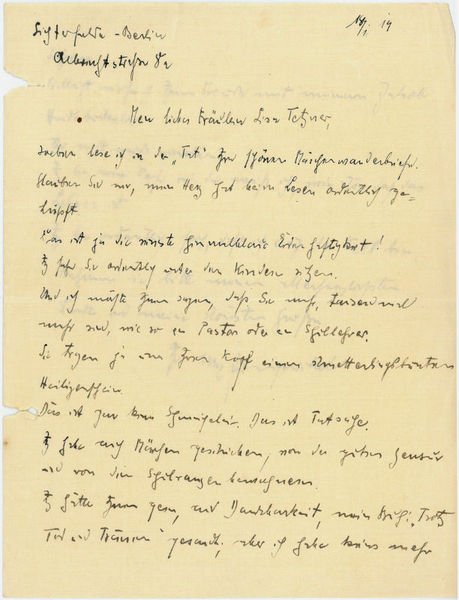 Lichterfelde-Berlin
Albrechtstraße 8a
14
Mein liebes Fräulein Lisa Tetzner,
soeben lese ich in der „Tat" Ihre schönen Märchenwanderbriefe.
Glauben Sie mir, mein Herz hat beim Lesen ordentlich ge-
hüpft
Das ist ja die reinste himmelklare Erdenhaftigkeit!
Ich sehe Sie ordentlich unter den Kindern sitzen.
Und ich möchte Ihnen sagen, daß Sie mehr, tausendmal
mehr sind, wie so ein Pastor oder ein Schullehrer.
Sie tragen ja um Ihren Kopf einen schmetterlingsbunten
Heiligenschein.
Das ist gar keine Schmeichelei. Das ist Tatsache.
Ich habe auch Märchen geschrieben, von der
und von den
Ich hätte Ihnen gern, aus Dankbarkeit, mein Buch: „Trotz
Tod und Tränen" gesandt, aber ich habe keins mehr